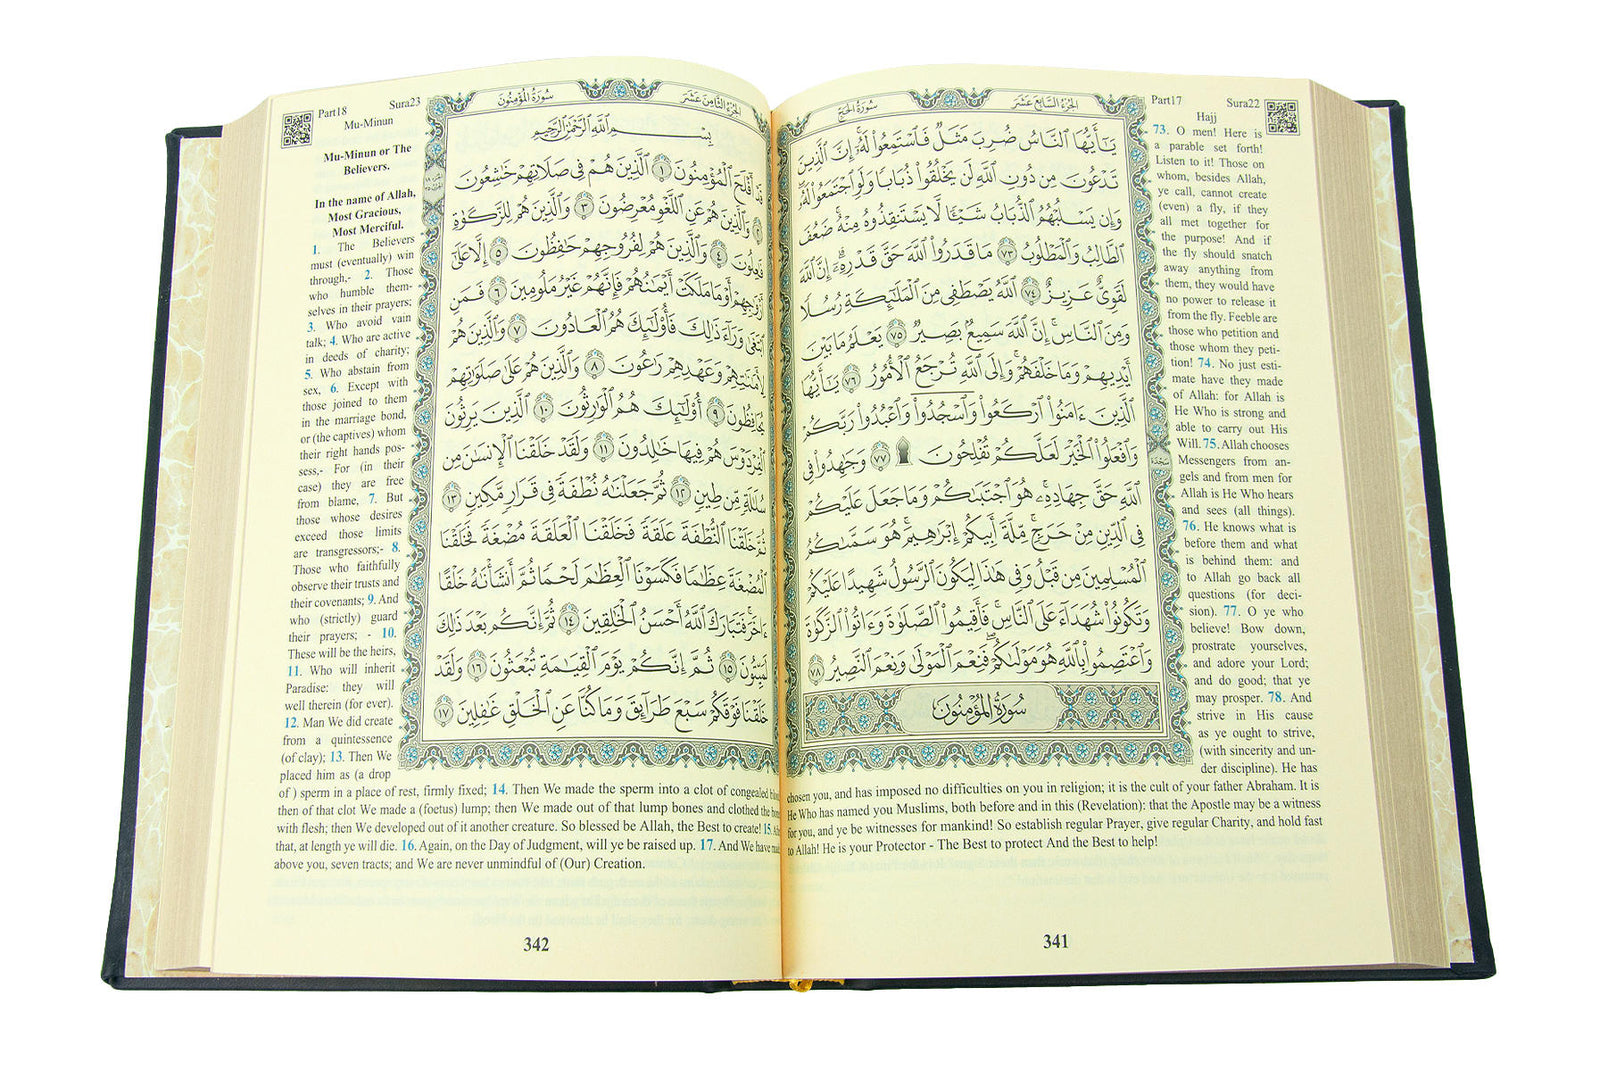 الجزء السابع عشر
سورة الحج
يَٰٓأَيُّهَا ٱلنَّاسُ ضُرِبَ مَثَلٌ فَٱسْتَمِعُوا۟ لَهُۥٓ إِنَّ ٱلَّذِينَ
تَدْعُونَ مِن دُونِ ٱللَّهِ لَن يَخْلُقُوا۟ ذُبَابًا وَلَوِ ٱجْتَمَعُوا۟ لَهُۥ
وَإِن يَسْلُبْهُمُ ٱلذُّبَابُ شَيْـًٔا لَّا يَسْتَنقِذُوهُ مِنْهُ ضَعُفَ
ٱلطَّالِبُ وَٱلْمَطْلُوبُ ٧٣ مَا قَدَرُوا۟ ٱللَّهَ حَقَّ قَدْرِهِۦٓ إِنَّ ٱللَّهَ
لَقَوِىٌّ عَزِيزٌ ٧٤ ٱللَّهُ يَصْطَفِى مِنَ ٱلْمَلَٰٓئِكَةِ رُسُلًا
وَمِنَ ٱلنَّاسِ إِنَّ ٱللَّهَ سَمِيعٌۢ بَصِيرٌ ٧٥ يَعْلَمُ مَا بَيْنَ
أَيْدِيهِمْ وَمَا خَلْفَهُمْ وَإِلَى ٱللَّهِ تُرْجَعُ ٱلْأُمُورُ ٧٦ يَٰٓأَيُّهَا
ٱلَّذِينَ ءَامَنُوا۟ ٱرْكَعُوا۟ وَٱسْجُدُوا۟ وَٱعْبُدُوا۟ رَبَّكُمْ
وَٱفْعَلُوا۟ ٱلْخَيْرَ لَعَلَّكُمْ تُفْلِحُونَ ۩ ٧٧ وَجَٰهِدُوا۟ فِى
ٱللَّهِ حَقَّ جِهَادِهِۦ هُوَ ٱجْتَبَىٰكُمْ وَمَا جَعَلَ عَلَيْكُمْ
فِى ٱلدِّينِ مِنْ حَرَجٍ مِّلَّةَ أَبِيكُمْ إِبْرَٰهِيمَ هُوَ سَمَّىٰكُمُ
ٱلْمُسْلِمِينَ مِن قَبْلُ وَفِى هَٰذَا لِيَكُونَ ٱلرَّسُولُ شَهِيدًا عَلَيْكُمْ
وَتَكُونُوا۟ شُهَدَآءَ عَلَى ٱلنَّاسِ فَأَقِيمُوا۟ ٱلصَّلَوٰةَ وَءَاتُوا۟ ٱلزَّكَوٰةَ
وَٱعْتَصِمُوا۟ بِٱللَّهِ هُوَ مَوْلَىٰكُمْ فَنِعْمَ ٱلْمَوْلَىٰ وَنِعْمَ ٱلنَّصِيرُ ٧٨
سجدة
سورة المؤمنون
Part17 Sura22
Hajj
73. O men! Here is
a parable set forth!
Listen to it! Those on
whom, besides Allah,
ye call, cannot create
(even) a fly, if they
all met together for
the purpose! And if
the fly should snatch
away anything from
them, they would have
no power to release it
from the fly. Feeble are
those who petition and
those whom they peti-
tion! 74. No just esti-
mate have they made
of Allah: for Allah is
He Who is strong and
able to carry out His
Will. 75. Allah chooses
Messengers from an-
gels and from men for
Allah is He Who hears
and sees (all things).
76. He knows what is
before them and what
is behind them: and
to Allah go back all
questions (for deci-
sion). 77. O ye who
believe! Bow down,
prostrate yourselves,
and adore your Lord;
and do good; that ye
may prosper. 78. And
strive in His cause
as ye ought to strive,
(with sincerity and un-
der discipline). He has
chosen you, and has imposed no difficulties on you in religion; it is the cult of your father Abraham. It is
He Who has named you Muslims, both before and in this (Revelation): that the Apostle may be a witness
for you, and ye be witnesses for mankind! So establish regular Prayer, give regular Charity, and hold fast
to Allah! He is your Protector - The Best to protect And the Best to help!
341
الجزء الثامن عشر
سورة المؤمنون
بِسْمِ ٱللَّهِ ٱلرَّحْمَٰنِ ٱلرَّحِيمِ
قَدْ أَفْلَحَ ٱلْمُؤْمِنُونَ ١ ٱلَّذِينَ هُمْ فِى صَلَاتِهِمْ خَٰشِعُونَ
٢ وَٱلَّذِينَ هُمْ عَنِ ٱللَّغْوِ مُعْرِضُونَ ٣ وَٱلَّذِينَ هُمْ لِلزَّكَوٰةِ
فَٰعِلُونَ ٤ وَٱلَّذِينَ هُمْ لِفُرُوجِهِمْ حَٰفِظُونَ ٥ إِلَّا عَلَىٰٓ
أَزْوَٰجِهِمْ أَوْ مَا مَلَكَتْ أَيْمَٰنُهُمْ فَإِنَّهُمْ غَيْرُ مَلُومِينَ ٦ فَمَنِ
ٱبْتَغَىٰ وَرَآءَ ذَٰلِكَ فَأُو۟لَٰٓئِكَ هُمُ ٱلْعَادُونَ ٧ وَٱلَّذِينَ هُمْ
لِأَمَٰنَٰتِهِمْ وَعَهْدِهِمْ رَٰعُونَ ٨ وَٱلَّذِينَ هُمْ عَلَىٰ صَلَوَٰتِهِمْ
يُحَافِظُونَ ٩ أُو۟لَٰٓئِكَ هُمُ ٱلْوَٰرِثُونَ ١٠ ٱلَّذِينَ يَرِثُونَ
ٱلْفِرْدَوْسَ هُمْ فِيهَا خَٰلِدُونَ ١١ وَلَقَدْ خَلَقْنَا ٱلْإِنسَٰنَ مِن
سُلَٰلَةٍ مِّن طِينٍ ١٢ ثُمَّ جَعَلْنَٰهُ نُطْفَةً فِى قَرَارٍ مَّكِينٍ ١٣
ثُمَّ خَلَقْنَا ٱلنُّطْفَةَ عَلَقَةً فَخَلَقْنَا ٱلْعَلَقَةَ مُضْغَةً فَخَلَقْنَا
ٱلْمُضْغَةَ عِظَٰمًا فَكَسَوْنَا ٱلْعِظَٰمَ لَحْمًا ثُمَّ أَنشَأْنَٰهُ خَلْقًا
ءَاخَرَ فَتَبَارَكَ ٱللَّهُ أَحْسَنُ ٱلْخَٰلِقِينَ ١٤ ثُمَّ إِنَّكُم بَعْدَ ذَٰلِكَ
لَمَيِّتُونَ ١٥ ثُمَّ إِنَّكُمْ يَوْمَ ٱلْقِيَٰمَةِ تُبْعَثُونَ ١٦ وَلَقَدْ
خَلَقْنَا فَوْقَكُمْ سَبْعَ طَرَآئِقَ وَمَا كُنَّا عَنِ ٱلْخَلْقِ غَٰفِلِينَ ١٧
Part18 Sura23
Mu-Minun
Mu-Minun or The
Believers.
In the name of Allah,
Most Gracious,
Most Merciful.
1. The Believers
must (eventually) win
through,- 2. Those
who humble them-
selves in their prayers;
3. Who avoid vain
talk; 4. Who are active
in deeds of charity;
5. Who abstain from
sex, 6. Except with
those joined to them
in the marriage bond,
or (the captives) whom
their right hands pos-
sess,- For (in their
case) they are free
from blame, 7. But
those whose desires
exceed those limits
are transgressors;- 8.
Those who faithfully
observe their trusts and
their covenants; 9. And
who (strictly) guard
their prayers; - 10.
These will be the heirs,
11. Who will inherit
Paradise: they will
well therein (for ever).
12. Man We did create
from a quintessence
(of clay); 13. Then We
placed him as (a drop
of ) sperm in a place of rest, firmly fixed; 14. Then We made the sperm into a clot of congealed
then of that clot We made a (foetus) lump; then We made out of that lump bones and clothed the
with flesh; then We developed out of it another creature. So blessed be Allah, the Best to create! 15.
that, at length ye will die. 16. Again, on the Day of Judgment, will ye be raised up. 17. And We have
above you, seven tracts; and We are never unmindful of (Our) Creation.
342